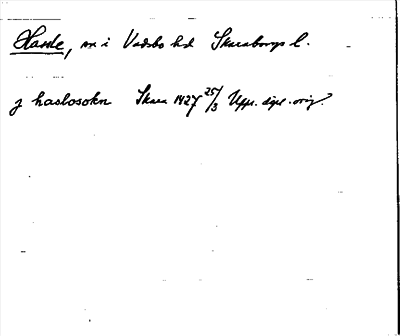 Hassle, sn i Vadsbo hd Skaraborgs l.
j haslosokn Skara 1427 25/3 Uppr. sigill. orig.